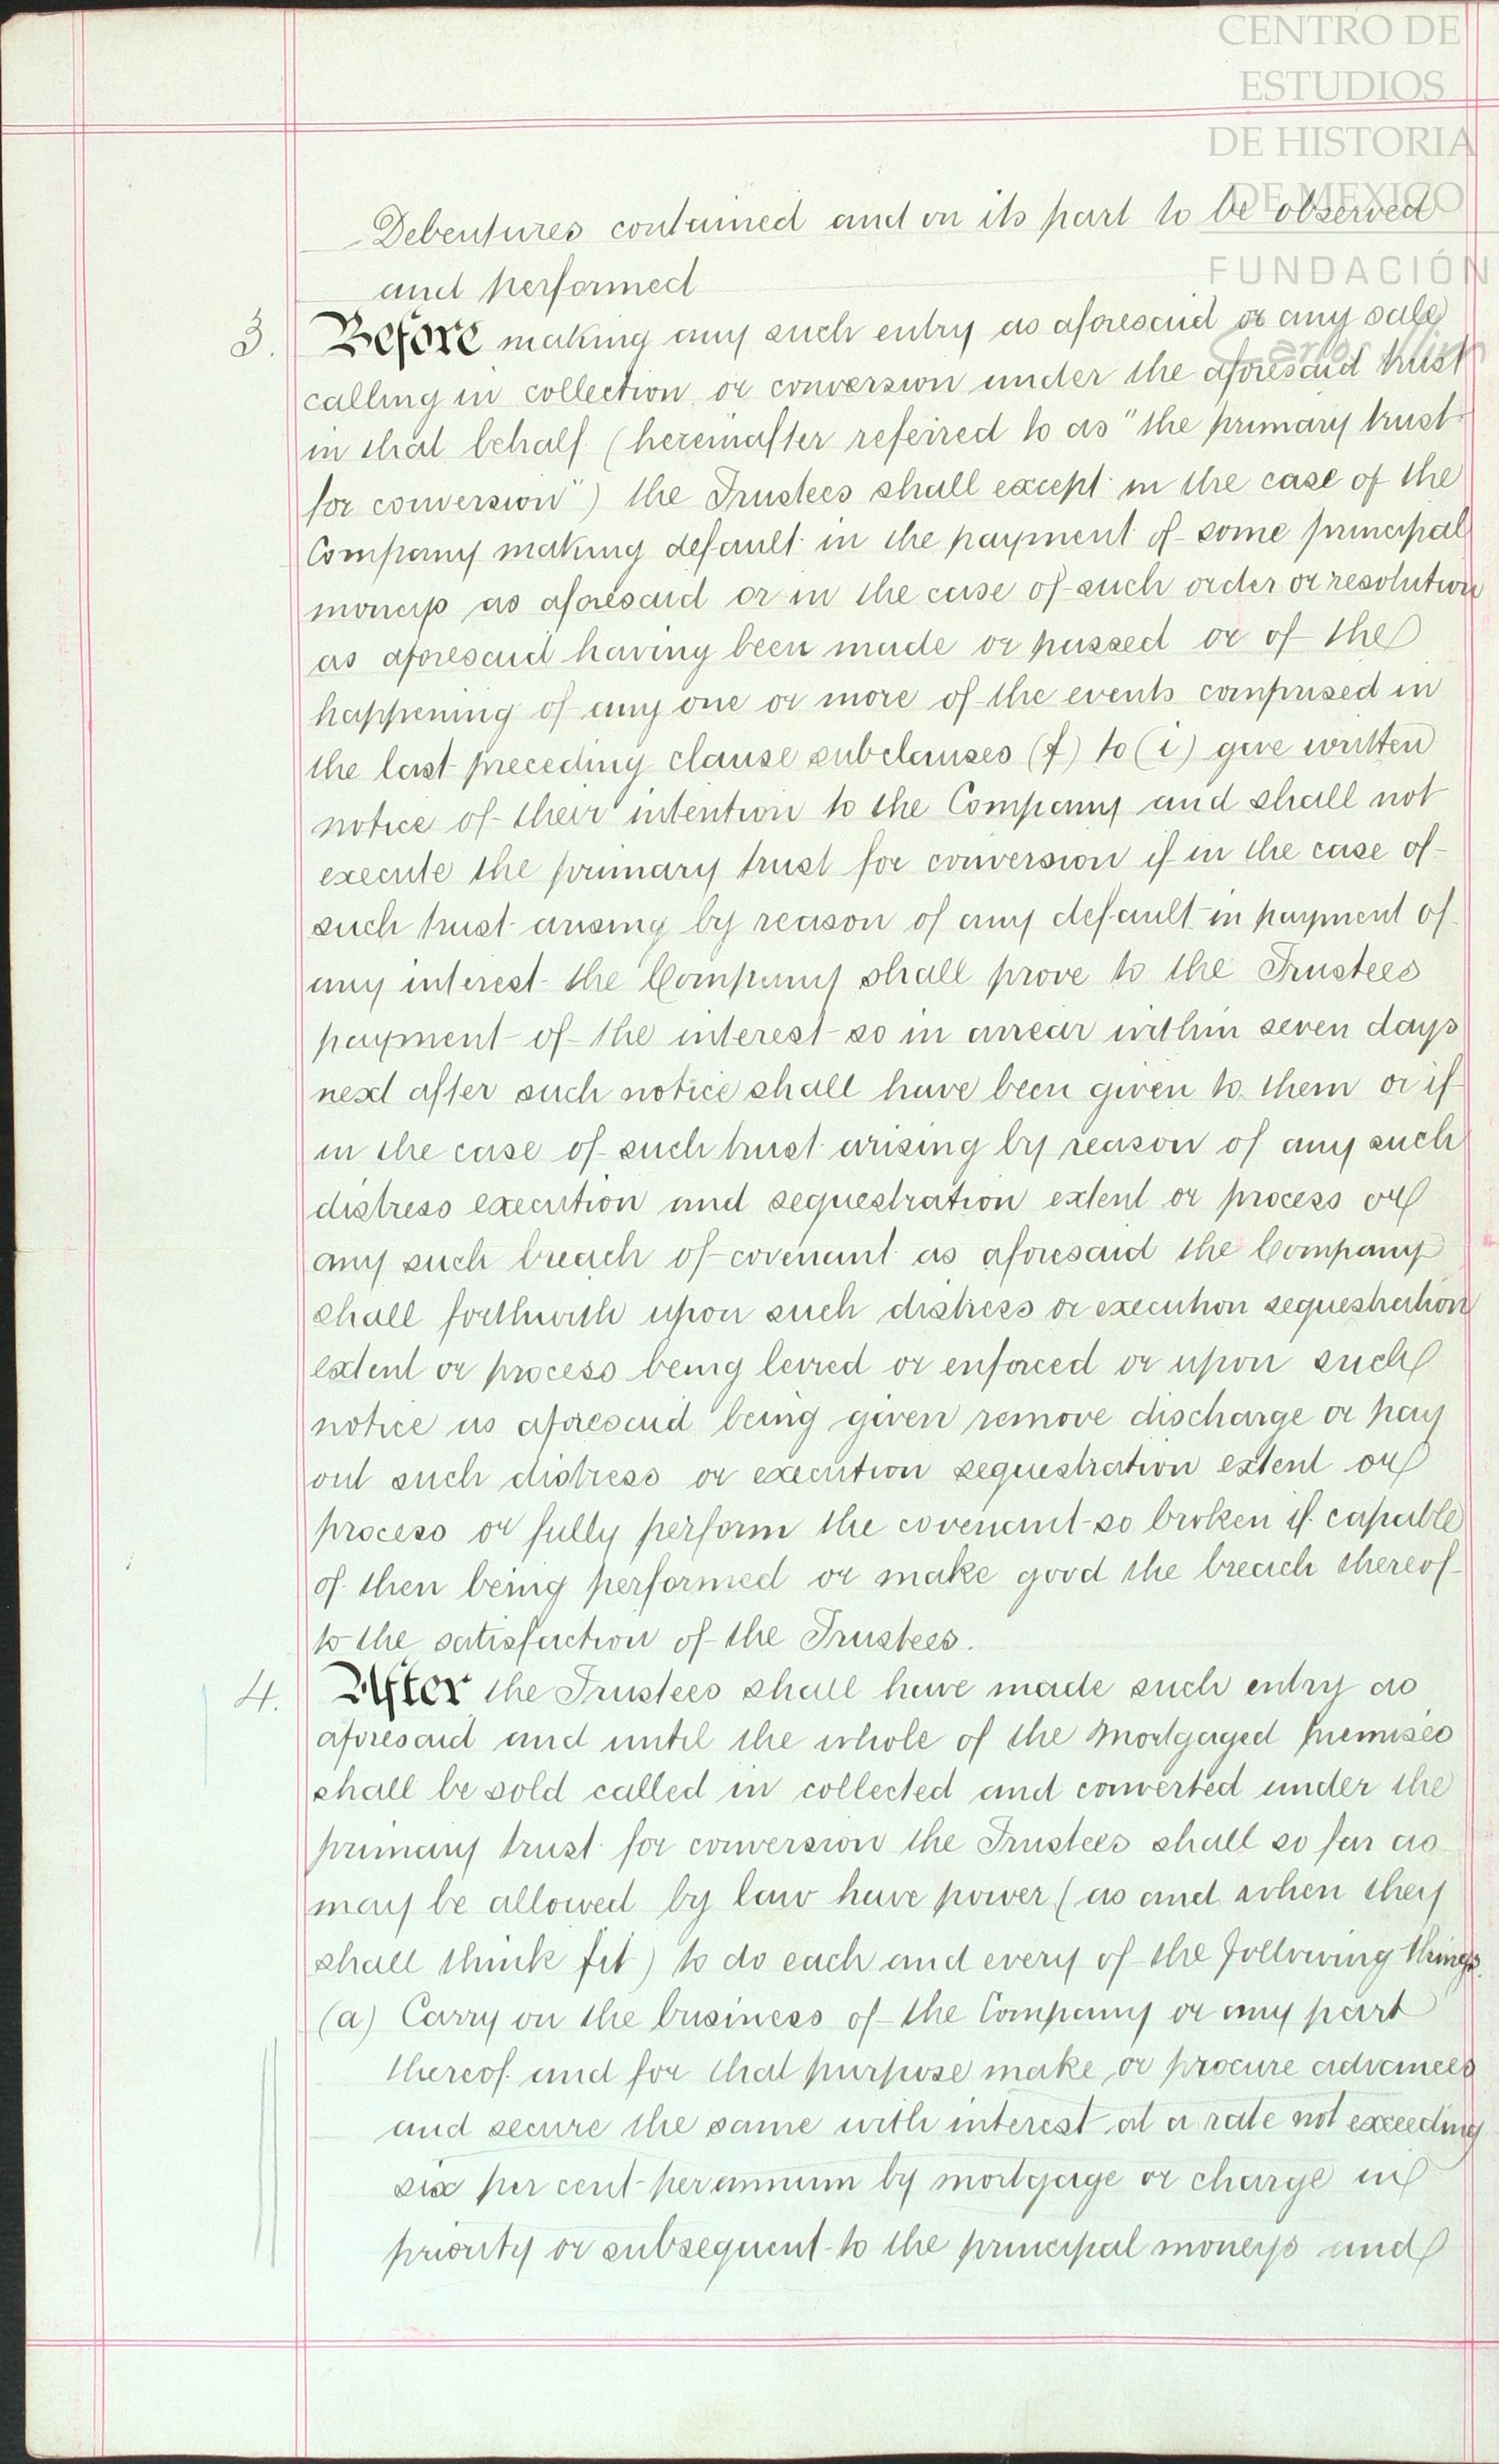 CENTRO DE
ESTUDIOS
DE HISTORIA
DE MEXICO
FUNDACIÓN
Carlos Slim
Debentures contained and on its part to be observed
and performed
3. Before making any such entry as aforesaid or any sale
calling in collection or conversion under the aforesaid trust
in that behalf (hereinafter referred to as "the primary trust
for conversion") the Trustees shall except in the case of the
Company making default in the payment of some principal
moneys as aforesaid or in the case of such order or resolution
as aforesaid having been made or passed or of the
happening of any one or more of the events comprised in
the last preceding clause subclauses (f) to (i) give written
notice of their intention to the Company and shall not
execute the primary trust for conversion if in the case of
such trust arising by reason of any default in payment of
any interest the Company shall prove to the Trustees
payment of the interest so in arrear within seven days
next after such notice shall have been given to them or if
in the case of such trust arising by reason of any such
distress execution and sequestration extent or process or
any such breach of covenant as aforesaid the Company
shall forthwith upon such distress or execution sequestration
extent or process being levied or enforced or upon such
notice as aforesaid being given remove discharge or pay
out such distress or execution sequestration extent or
process or fully perform the covenant so broken if capable
of then being performed or make good the breach thereof
to the satisfaction of the Trustees.
4. After the Trustees shall have made such entry as
aforesaid and until the whole of the Mortgaged premises
shall be sold called in collected and converted under the
primary trust for conversion the Trustees shall so far as
may be allowed by law have power (as and when they
shall think fit) to do each and every of the following things.
(a) Carry on the business of the Company or any part
thereof and for that purpose make or procure advances
and secure the same with interest at a rate not exceeding
six per cent per annum by mortgage or charge in
priority or subsequent to the principal moneys and